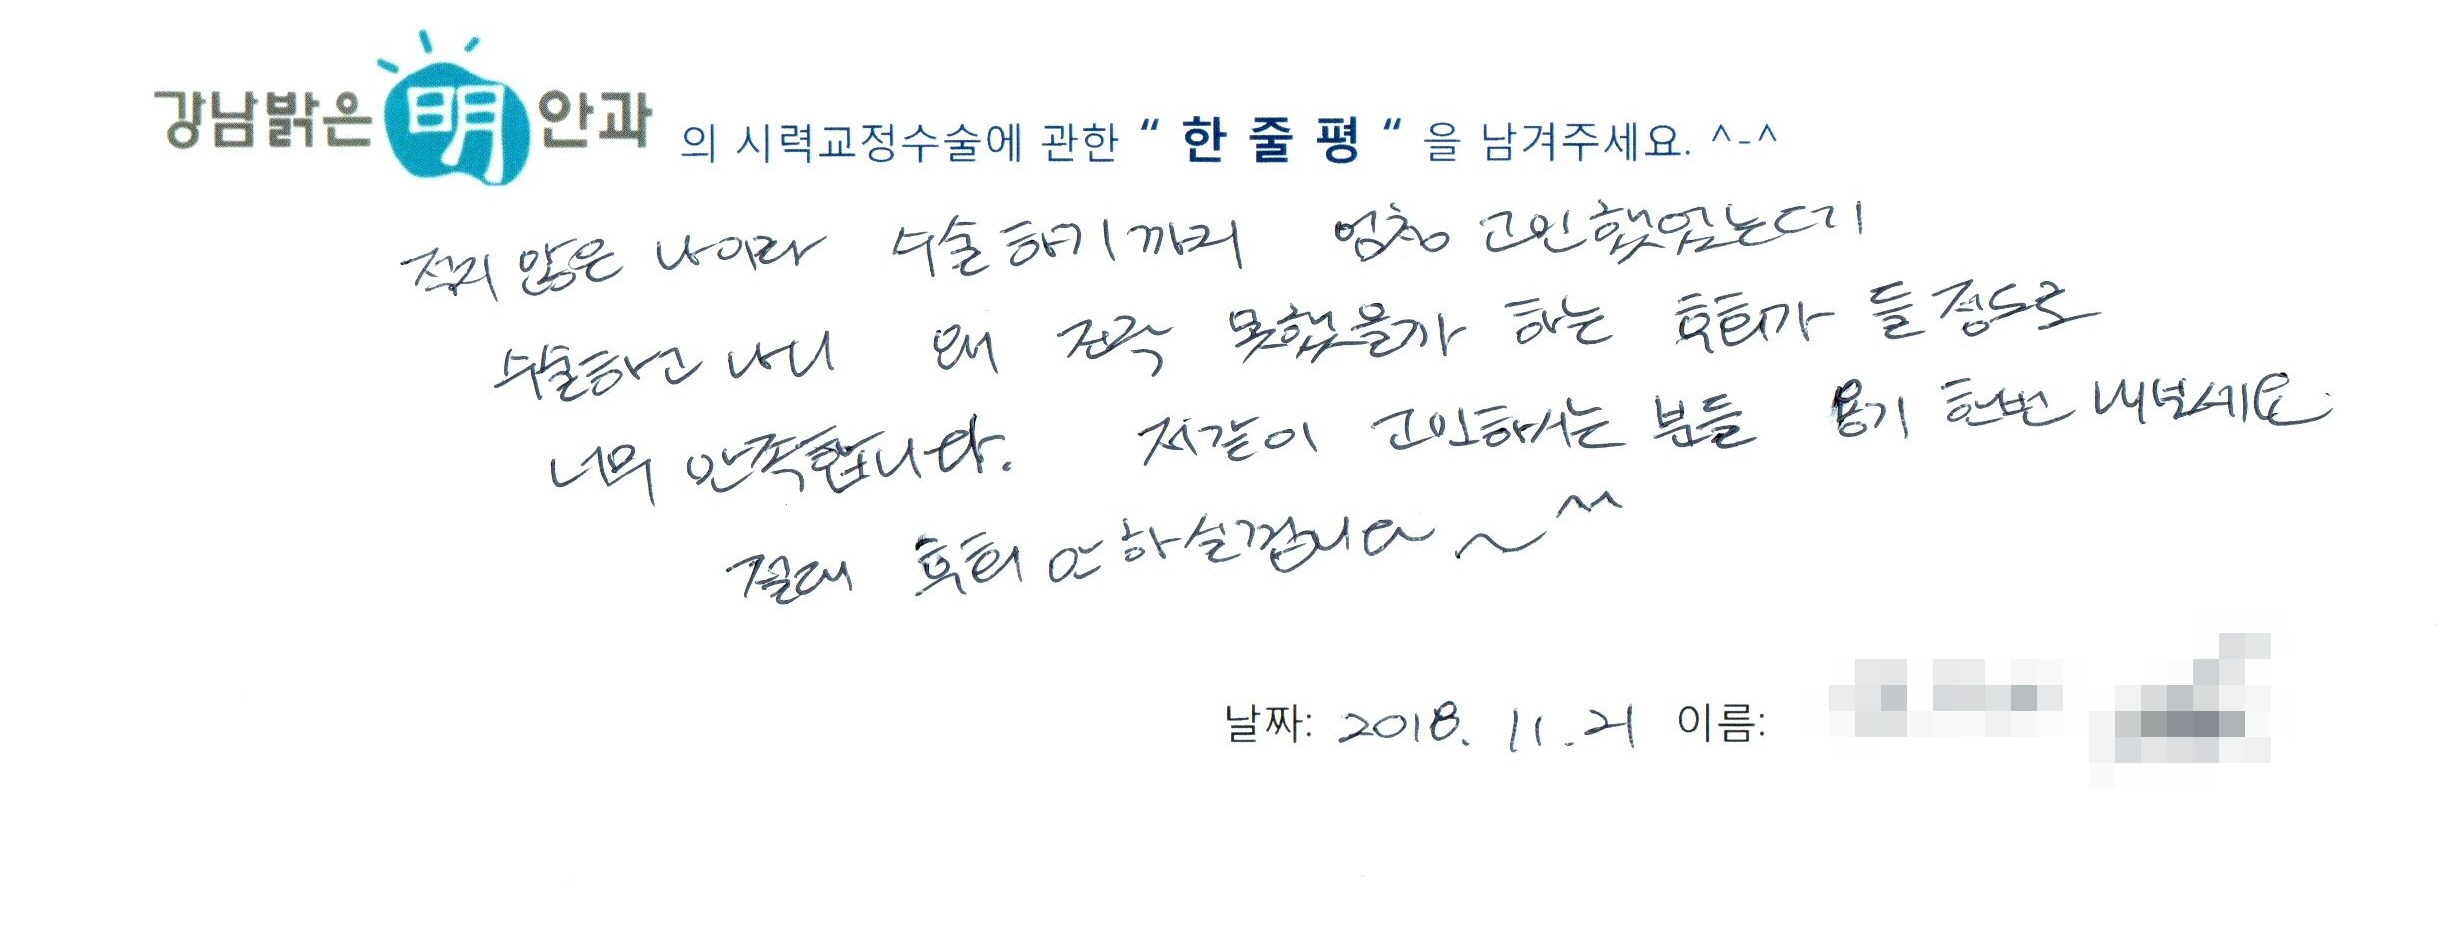 강남밝은 明 안과 의 시력교정수술에 관한 “ 한 줄 평 “ 을 남겨주세요. ^-^
적지 않은 나이라 수술하기까지 엄청 고민했었는데
수술하고 나니 왜 진작 못했을까 하는 후회가 들 정도로
너무 만족합니다. 저같이 고민하시는 분들 용기 한번 내보세요
절대 후회 안 하실겁니다~^^
날짜: 2018. 11. 21 이름: